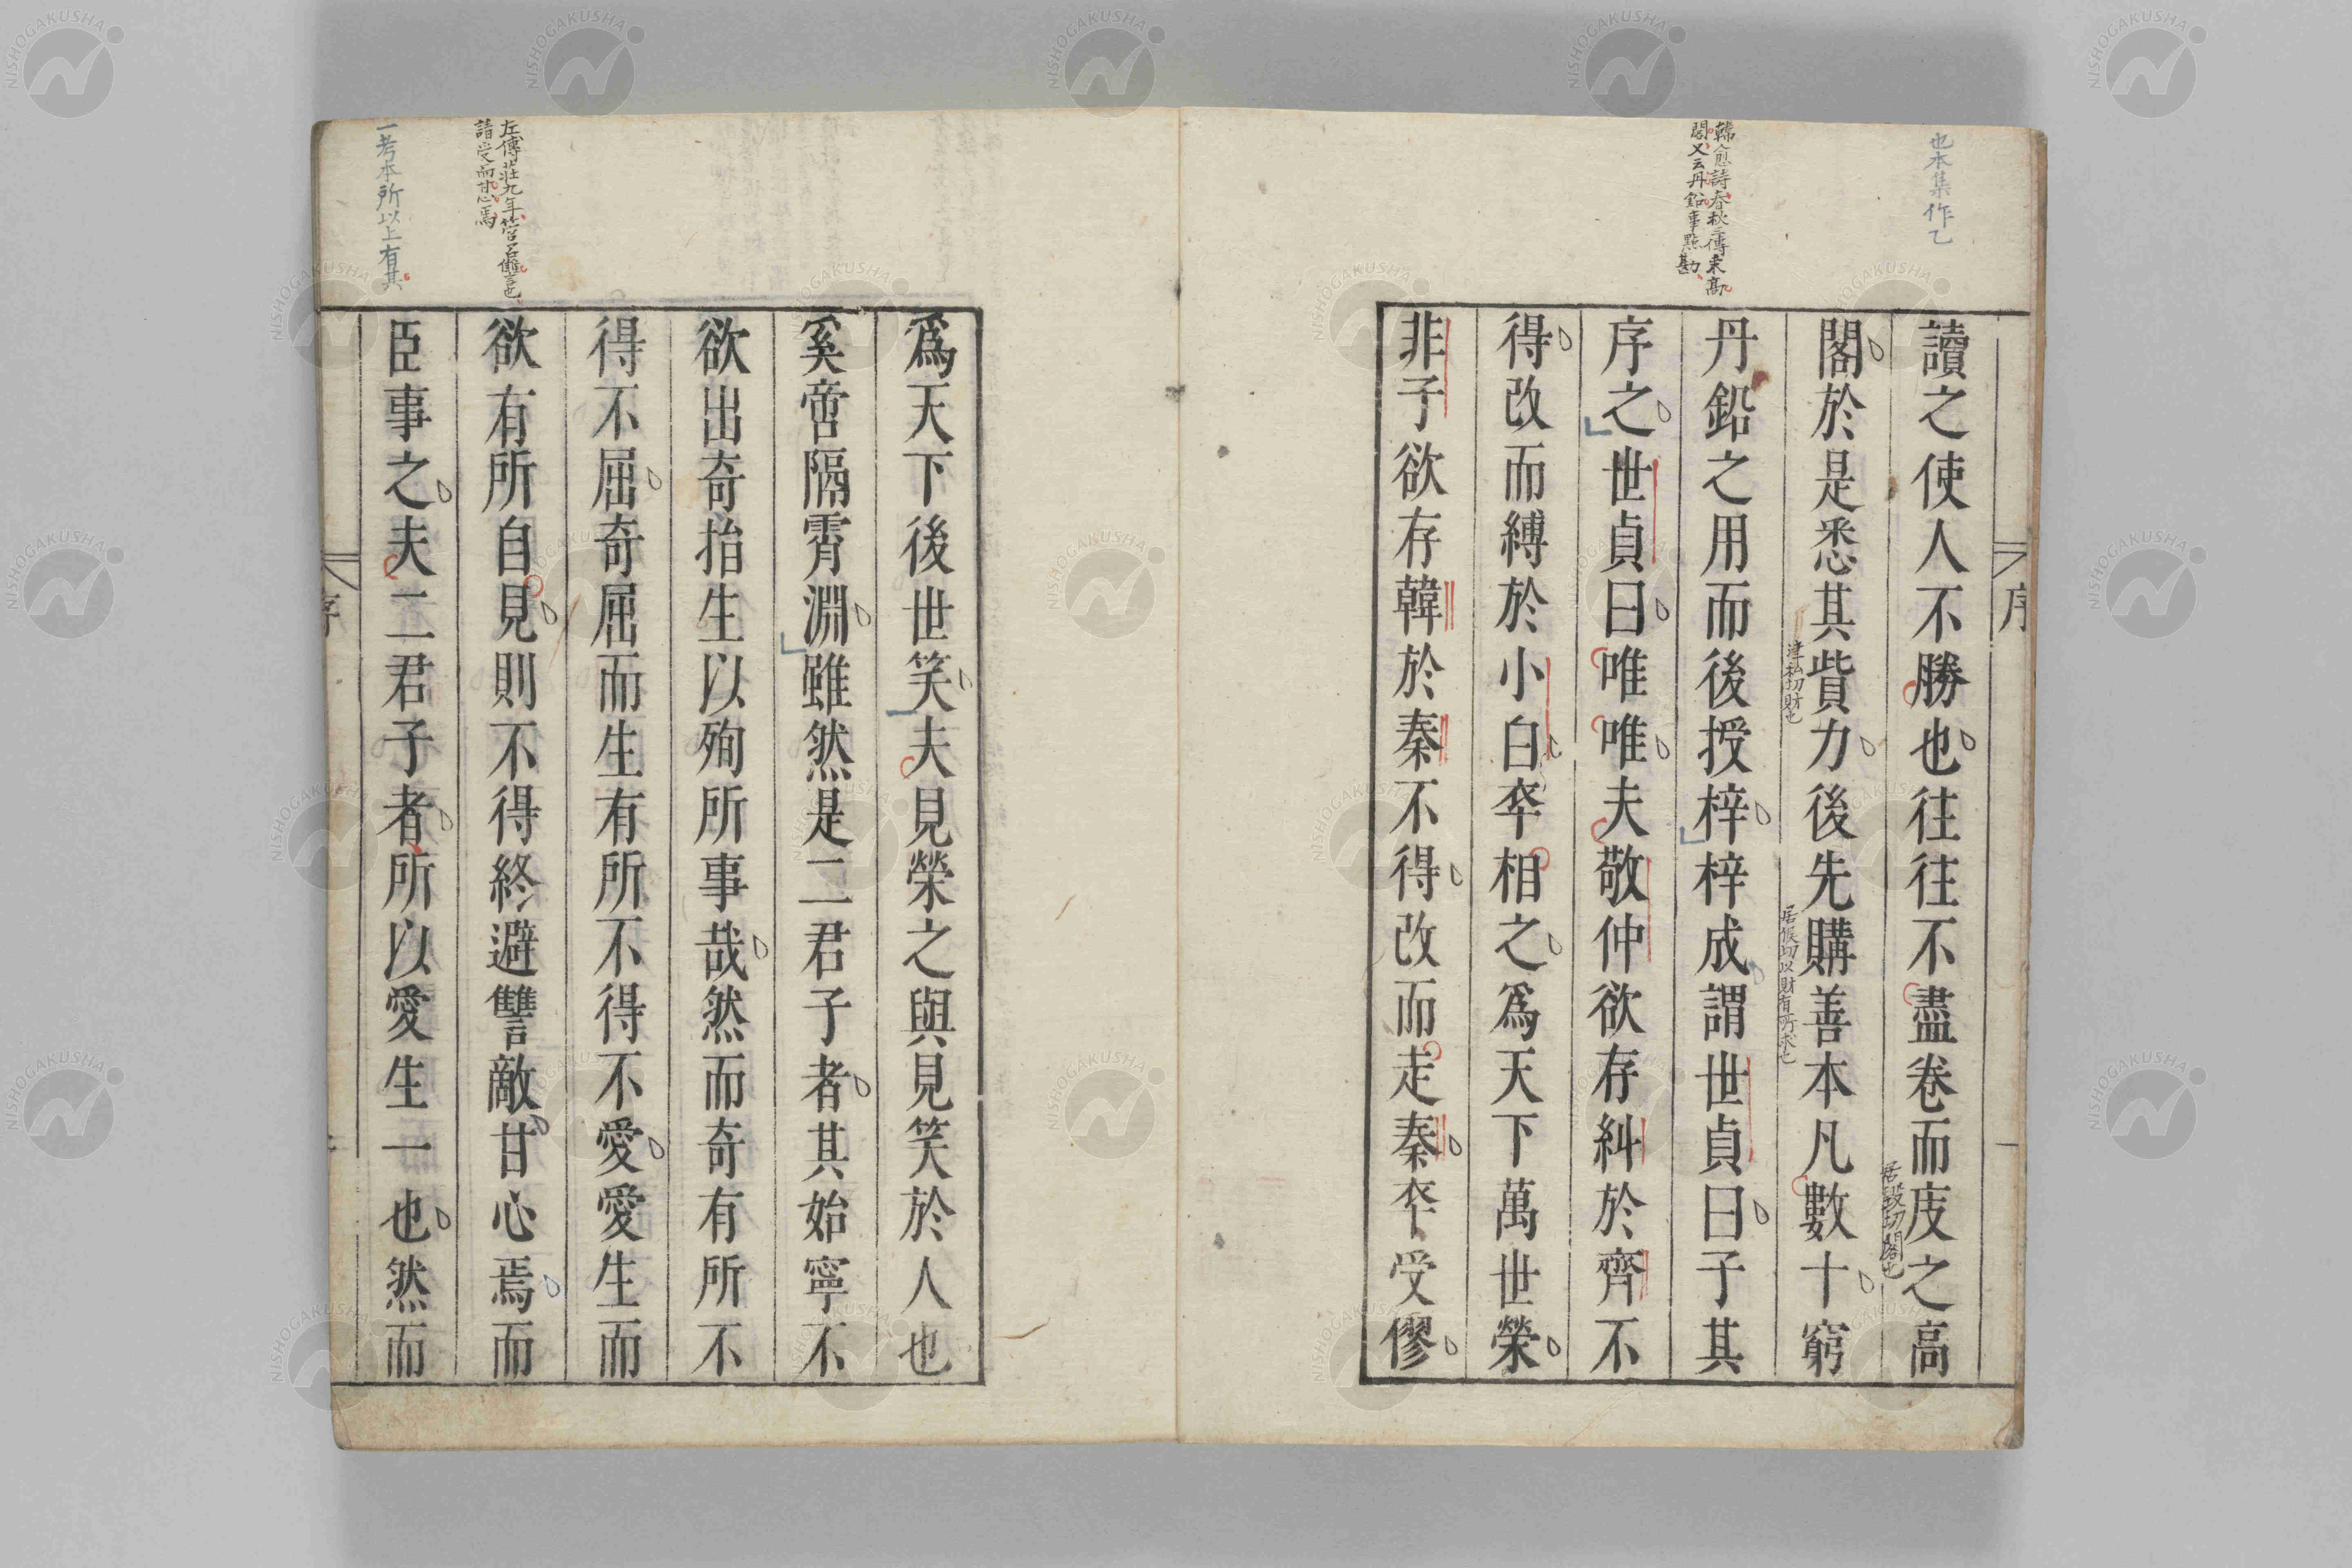 讀之使人不勝也往往不盡卷而庋之高
閣於是悉其貲力後先購善本凡數十窮
丹鉛之用而後授梓梓成謂世貞曰子其
序之世貞曰唯唯夫敬仲欲存糾於齊不
得改而縛於小白卒相之爲天下萬世榮
非子欲存韓於秦不得改而走秦卒受僇
爲天下後世笑夫見榮之與見笑於人也
奚啻隔霄淵雖然是二君子者其始寧不
欲出奇抬生以殉所事哉然而奇有所不
得不屈奇屈而生有所不得不愛愛生而
欲有所自見則不得終避讐敵甘心焉而
臣事之夫二君子者所以愛生一也然而
序
也本集作乙
韓愈詩春秋三傳束高
閣又云丹鉛事點勘
津私切財也
居候切以財有所求也
居毀切閣也
左傳莊九年管召讎也
請受而甘心焉
一考本所以上有其
NISHOGAKUSHA